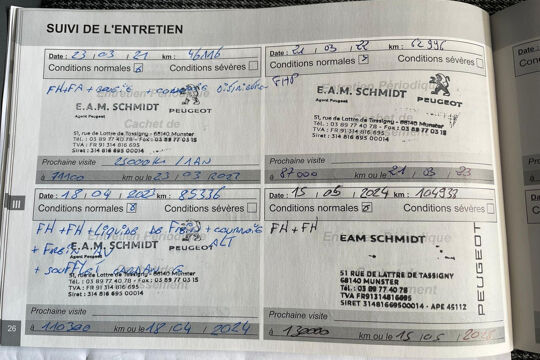 SUIVI DE L'ENTRETIEN
Date : 23 / 03 / 21 km : 46116
Conditions normales ☒ Conditions sévères ☐
E.A.M. SCHMIDT
Agent Peugeot
PEUGEOT
51, rue de Lattre de Tassigny - 68140 Munster
Tél. : 03 89 77 40 78 - Fax : 03 89 77 03 15
TVA : FR 91 314 816 695
Siret : 314 816 695 00014
Prochaine visite 25000 km / 1 AN
à 71100 km ou le 23 / 03 / 2022
Date : 21 / 03 / 22 km : 62996
Conditions normales ☒ Conditions sévères ☐
FHP
Périodique
E.A.M. SCHMIDT
Agent Peugeot
PEUGEOT
51, rue de Lattre de Tassigny - 68140 Munster
Tél. : 03 89 77 40 78 - Fax : 03 89 77 03 15
TVA : FR 91 314 816 695
Siret : 314 816 695 00014
Prochaine visite
à 87000 km ou le 21 / 03 / 23
III
Date : 18 / 04 / 2023 km : 85336
Conditions normales ☒ Conditions sévères ☐
FH + FH + LIQUIDE DE FREIN + COURROIE
ALT
+ FREIN AV
E.A.M. SCHMIDT
Agent Peugeot
PEUGEOT
+ SOUFFLET
51, rue de Lattre de Tassigny - 68140 Munster
Tél. : 03 89 77 40 78 - Fax : 03 89 77 03 15
TVA : FR 91 314 816 695
Siret : 314 816 695 00014
Prochaine visite
à 110300 km ou le 18 / 04 / 2024
Date : 15 / 05 / 2024 km : 104933
Conditions normales ☒ Conditions sévères ☐
FH + FH
EAM SCHMIDT
PEUGEOT
51 RUE DE LATTRE DE TASSIGNY
68140 MUNSTER
Tél.: 03 89 77 40 78
TVA FR91314816695
SIRET 31481669500014 - APE 4511Z
Prochaine visite
à 130000 km ou le 15 / 05 / 2025
26